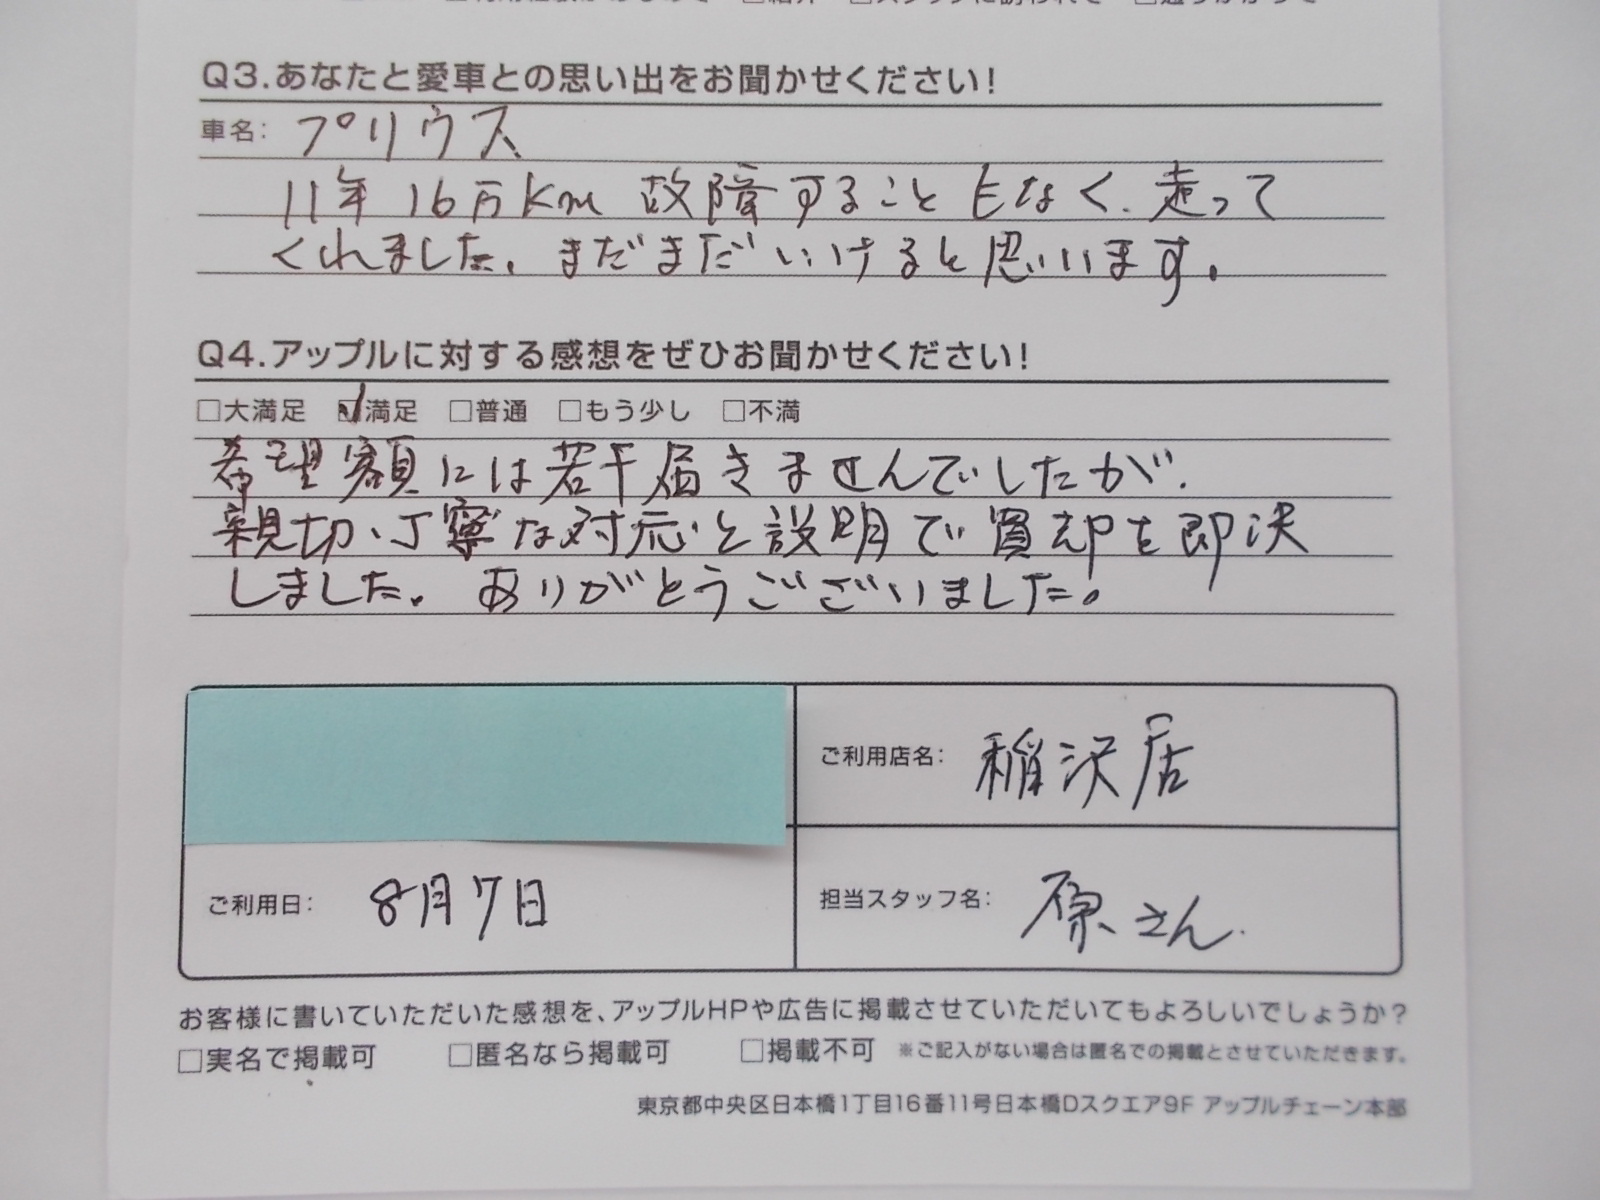 Q3.あなたと愛車との思い出をお聞かせください!
車名: プリウス
11年16万Km 故障することもなく、走って
くれました。まだまだいけると思います。
Q4.アップルに対する感想をぜひお聞かせください!
□大満足 ☑満足 □普通 □もう少し □不満
希望額には若干届きませんでしたが、
親切、丁寧な対応と説明で買却を即決
しました。ありがとうございました。
ご利用店名: 稲沢店
ご利用日: 8月7日
担当スタッフ名: 原さん
お客様に書いていただいた感想を、アップルHPや広告に掲載させていただいてもよろしいでしょうか?
□実名で掲載可 □匿名なら掲載可 □掲載不可 ※ご記入がない場合は匿名での掲載とさせていただきます。
東京都中央区日本橋1丁目16番11号日本橋Dスクエア9F アップルチェーン本部